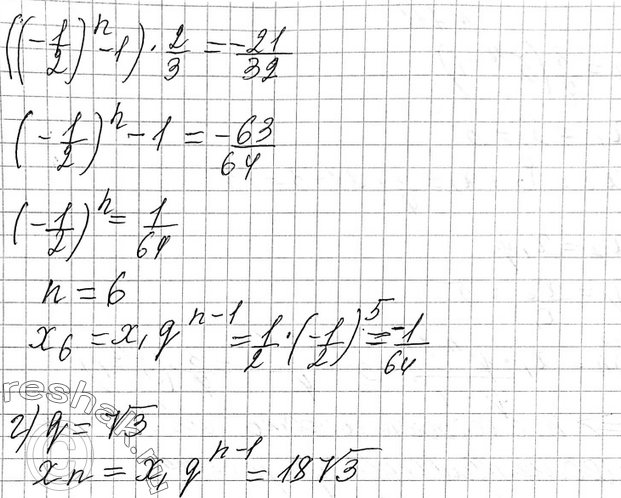 ((-1/2)^n - 1) · 2/3 = -21/32
(-1/2)^n - 1 = -63/64
(-1/2)^n = 1/64
n = 6
x₆ = x₁ q^(n-1) = 1/2 · (-1/2)^5 = -1/64
reshak.ru
г) q = √3
xn = x₁ q^(n-1) = 18√3